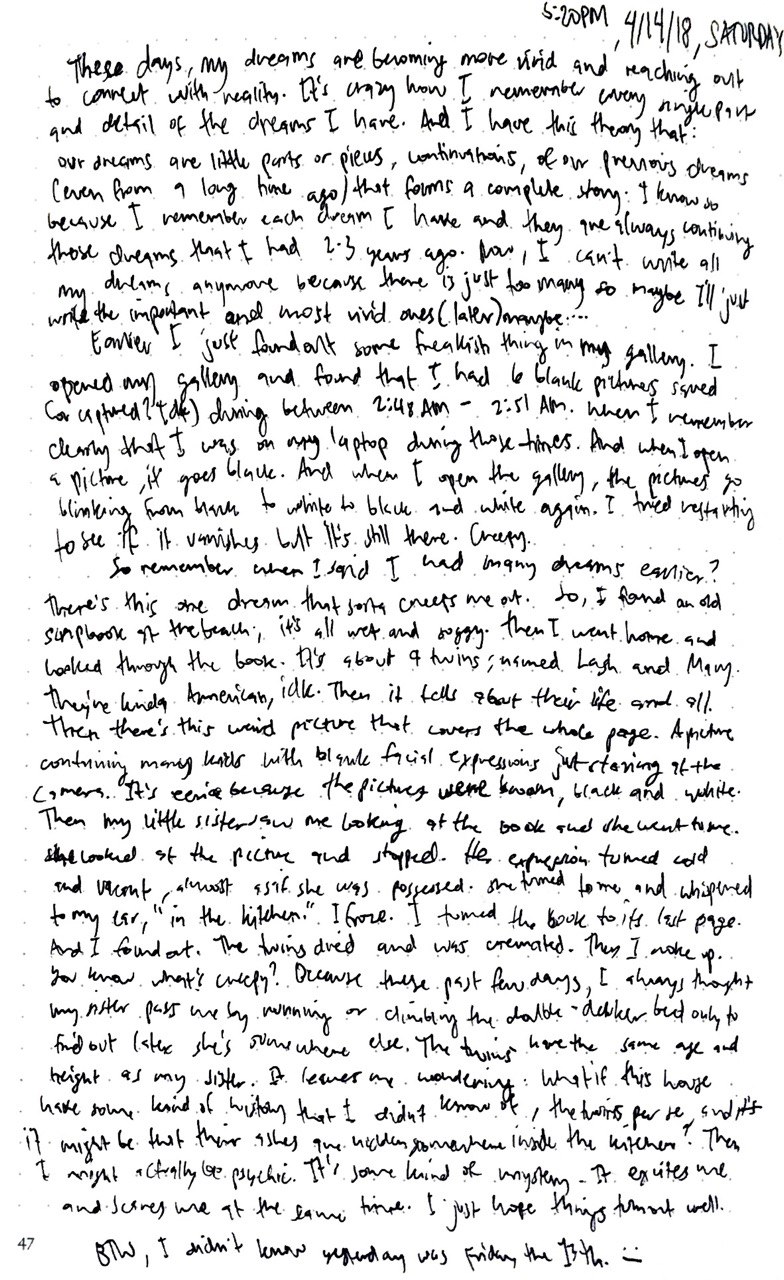 5:20PM, 4/14/18, SATURDAY
These days, my dreams are becoming more vivid and reaching out
to connect with reality. It's crazy how I remember every single part
and detail of the dreams I have. And I have this theory that:
our dreams are little parts or pieces, continuations, of our previous dreams
(even from a long time ago) that forms a complete story. I know so
because I remember each dream I have and they are always continuing
those dreams that I had 2-3 years ago. Now, I can't write all
my dreams anymore because there is just too many so maybe I'll just
write the important and most vivid ones (later) maybe....
Earlier I just found out some freakish thing in my gallery. I
opened my gallery and found that I had 6 blank pictures saved
(or captured? idk) during between 2:48 AM - 2:51 AM. When I remember
clearly that I was on my laptop during those times. And when I open
a picture, it goes black. And when I open the gallery, the pictures go
blinking from black to white to black and white again. I tried restarting
to see if it vanishes but it's still there. Creepy.
So remember when I said I had many dreams earlier?
There's this one dream that sorta creeps me out. So, I found an old
scrapbook at the beach, it's all wet and soggy. Then I went home and
looked through the book. It's about a twins; named Lash and Mary.
They're kinda American, idk. Then it tells about their life and all.
Then there's this weird picture that covers the whole page. A picture
containing many kids with blank facial expressions just staring at the
camera. It's eerie because the pictures were brown, black and white.
Then my little sister saw me looking at the book and she went to me.
She looked at the picture and stopped. Her expression turned cold
and vacant, almost as if she was possessed. She turned to me and whispered
to my ear, "in the kitchen." I froze. I turned the book to its last page.
And I found out. The twins died and was cremated. Then I woke up.
You know what's creepy? Because these past few days, I always thought
my sister pass me by running or climbing the double-dekker bed only to
find out later she's somewhere else. The twins have the same age and
height as my sister. It leaves me wondering: what if this house
have some kind of history that I didn't know of, the twins per se, and it's
it might be that their ashes are hidden somewhere inside the kitchen? Then
I might actually be psychic. It's some kind of mystery. It excites me
and scares me at the same time. I just hope things turn out well.
BTW, I didn't know yesterday was Friday the 13th.
47